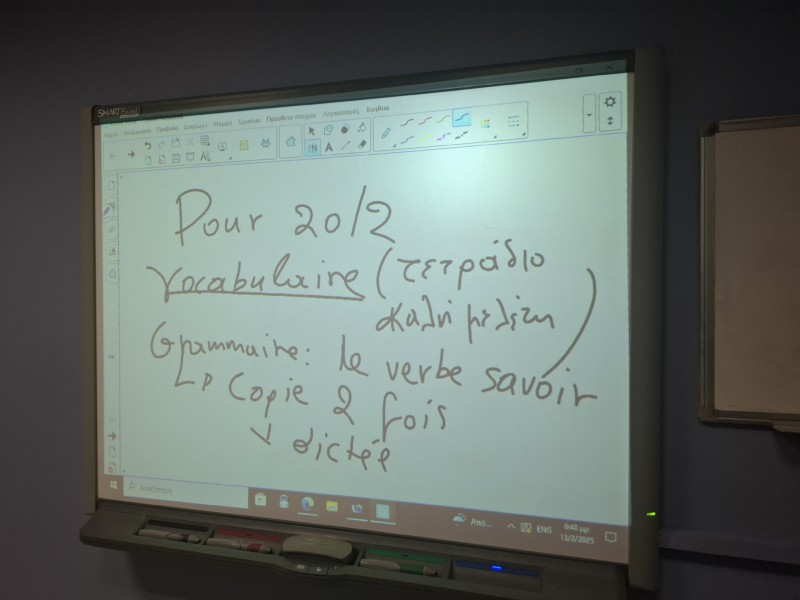 SMART Board
Αρχείο Επεξεργασία Προβολή Εισαγωγή Μορφή Εργαλεία Πρόσθετα στοιχεία Λογαριασμός Βοήθεια
Pour 20/2
Vocabulaire (τετράδιο
καλή μελέτη)
Grammaire: le verbe savoir
↳ Copie 2 fois
↓ dictée
Αναζήτηση
Από... ENG 6:48 μμ
13/2/2025